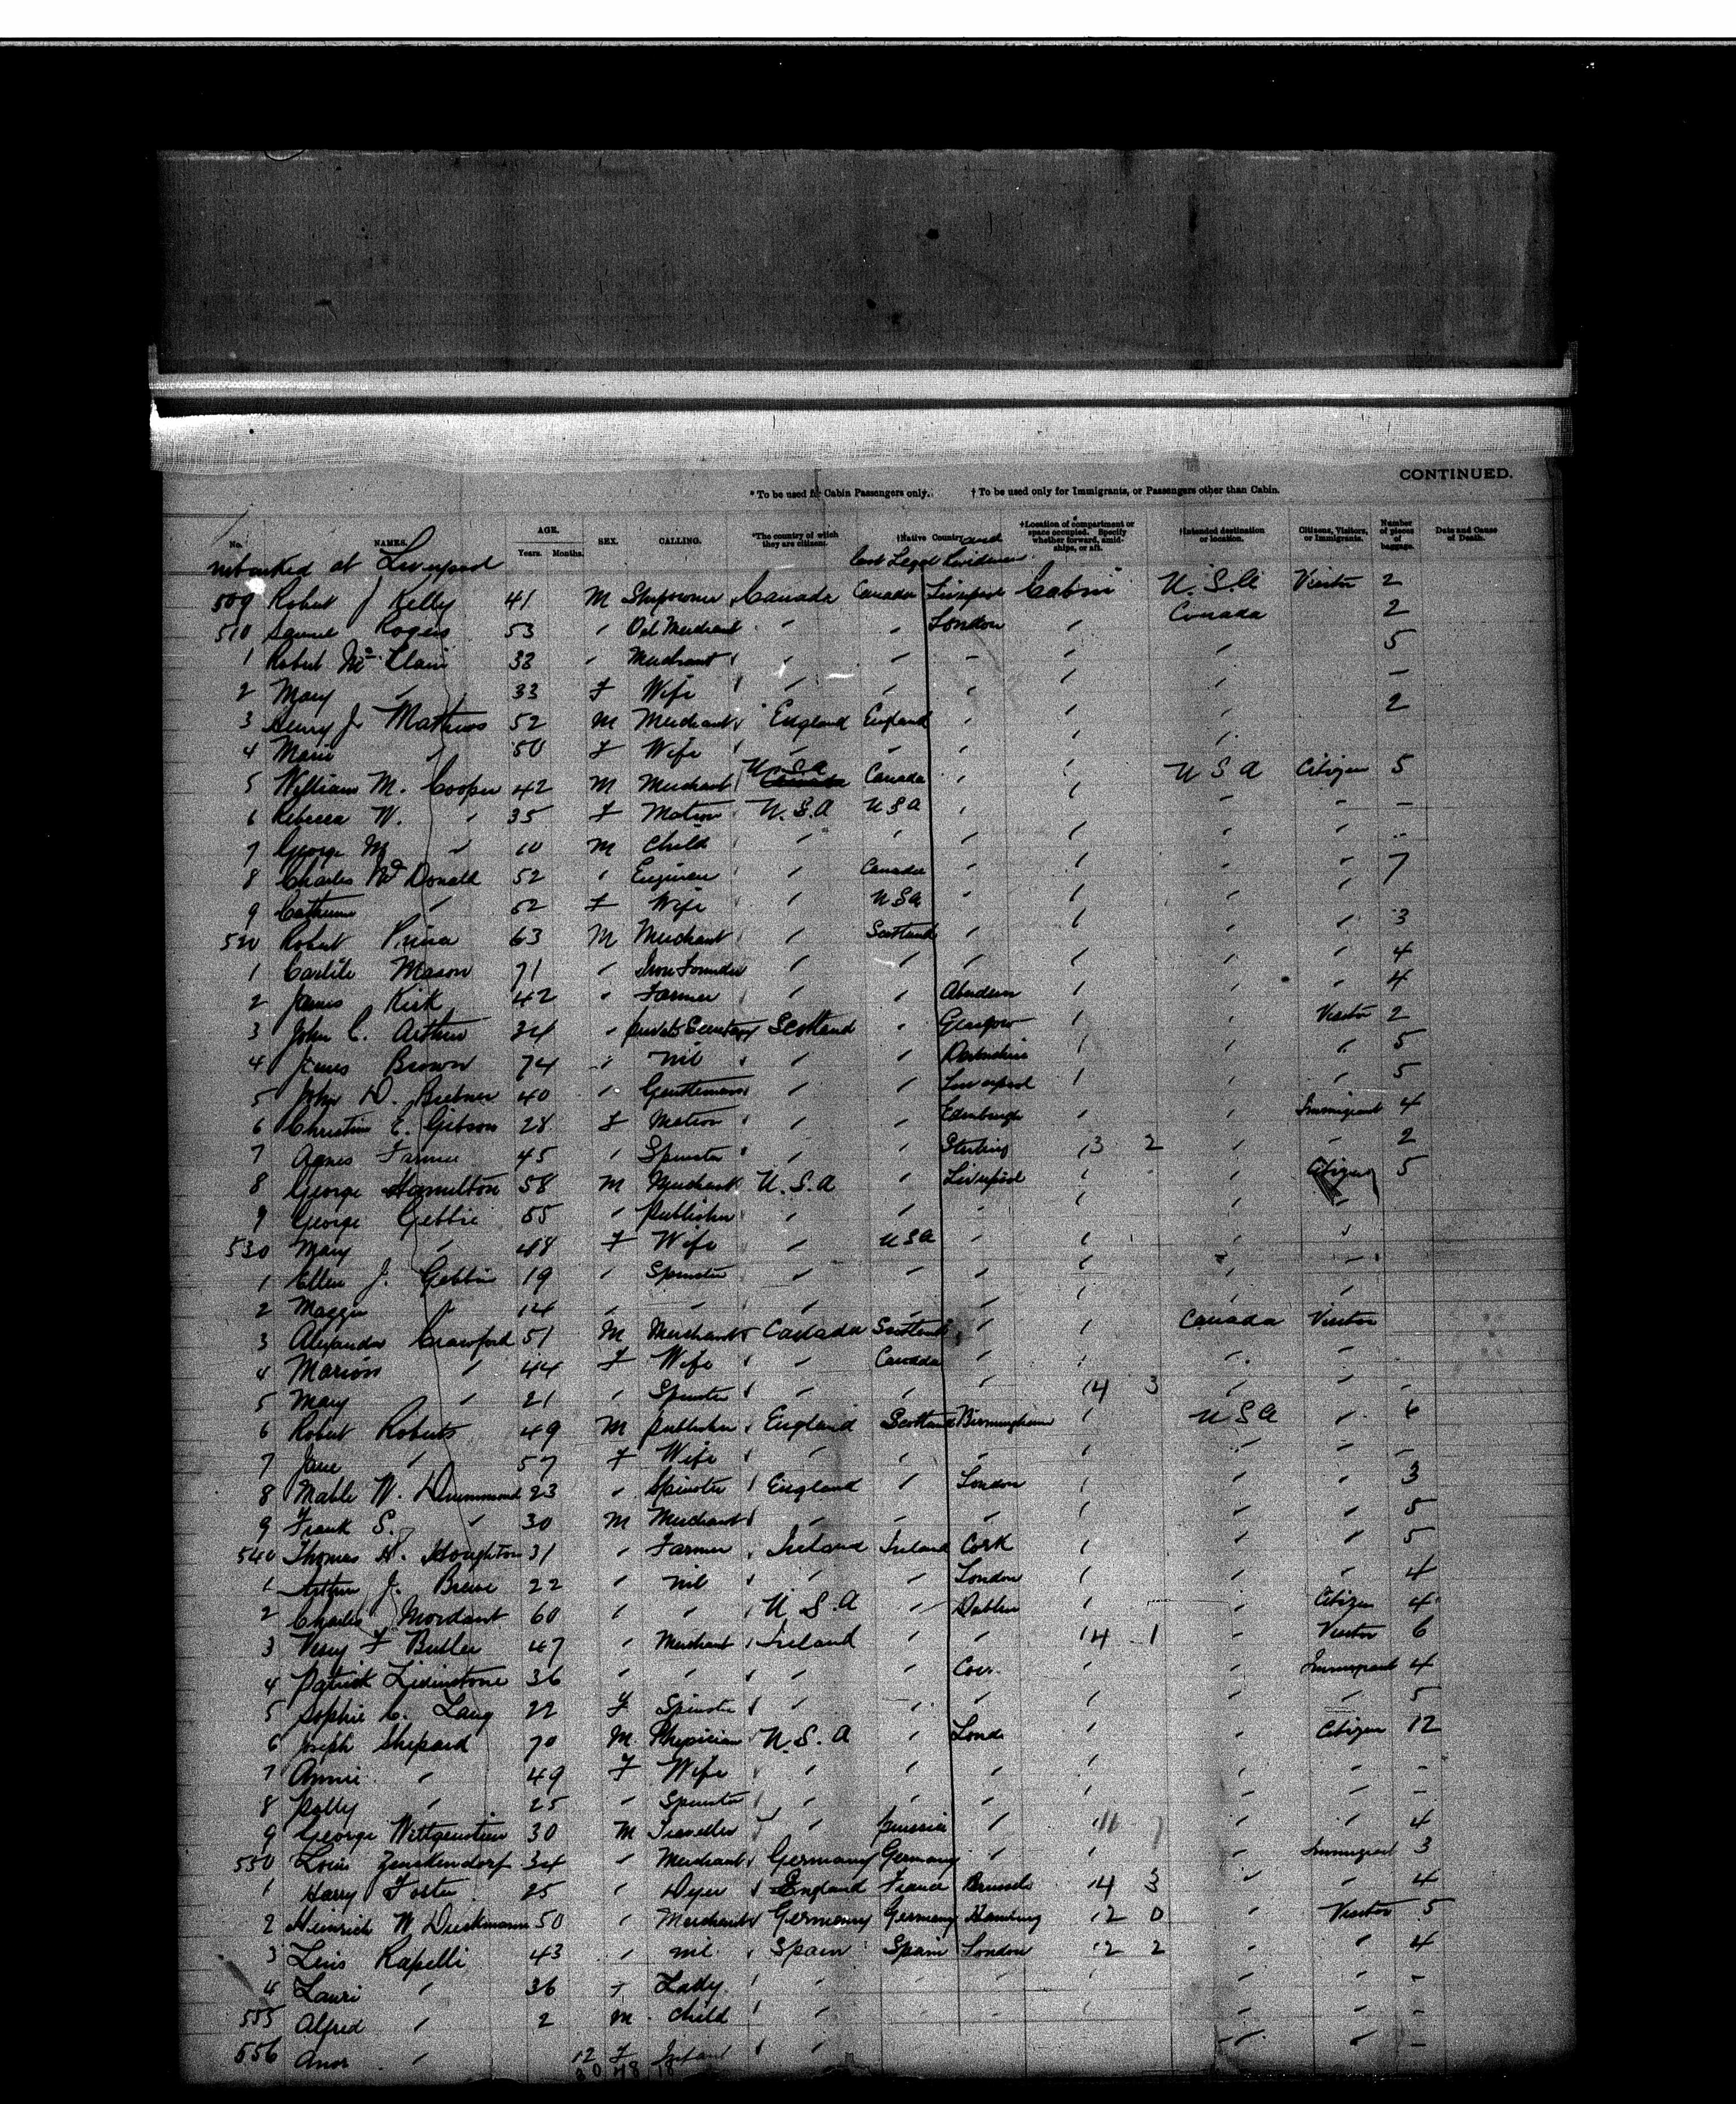 CONTINUED.
* To be used for Cabin Passengers only. † To be used only for Immigrants, or Passengers other than Cabin.
No. NAMES. AGE. Years. Months. SEX. CALLING. *The country of which they are citizens. †Native Country and Last Legal Residence †Location of compartment or space occupied. Specify whether forward, amidships, or aft. †Intended destination or location. Citizens, Visitors, or Immigrants. Number of pieces of baggage. Date and Cause of Death.
mbarked at Liverpool
509 Robert J Kelly 41 M Shipowner Canada Canada Liverpool Cabin U.S.A Visitor 2
510 Samuel Rogers 53 " Oil Merchant " " London " Canada 2
1 Robert Mc Clain 38 " Merchant " " " " " 5
2 Mary " 33 F Wife " " " " " -
3 Henry J Mathews 52 M Merchant England England " " " 2
4 Marie " 50 F Wife " " " " "
5 William M. Cooper 42 M Merchant U.S.A Canada " " U S A Citizen 5
6 Rebecca W. " 35 F Matron U.S.A U S A " " " " -
7 George M " 10 M Child " " " " " " -
8 Charles McDonald 52 " Engineer " Canada " " " " 7
9 Catherine " 52 F Wife " U S A " " " "
520 Robert 63 M Merchant " Scotland " " " " 3
1 Carlile Mason 71 " Iron Founder " " " " " " 4
2 James Kirk 42 " Farmer " " Aberdeen " " " 4
3 John C. Arthur 34 " private Secretary Scotland " Glasgow " " Visitor 2
4 James Brown 74 " nil " " " " " 5
5 John D. Brebner 40 " Gentleman " " Liverpool " " " 5
6 Christin E. Gibson 28 F Matron " " Edinburgh " " Immigrant 4
7 Agnes Farmer 45 " Spinster " " Sterling 13 2 " " 2
8 George Hamilton 58 M Merchant U.S.A " Liverpool " " Citizen 5
9 George Gebbie 55 " publisher " " " " " "
530 Mary " 48 F Wife " U S A " " " "
1 Ellen J. Gebbie 19 " Spinster " " " " " "
2 Maggie " 14 " " " " " " " "
3 Alexander Crawford 51 M Merchant Canada Scotland " " Canada Visitor
4 Marion " 44 F Wife " Canada " " " "
5 Mary " 21 " Spinster " " " 14 3 " " -
6 Robert Roberts 49 M publisher England Scotland Birmingham " U S A " 6
7 Jane " 57 F Wife " " " " " " -
8 Mable W. Drummond 23 " Spinster England " London " " " 3
9 Frank S. " 30 M Merchant " " " " " 5
540 Thomas H. Houghton 31 " Farmer Ireland Ireland Cork " " " 5
1 Arthur J. 22 " nil " " London " " " 4
2 Charles Mordant 60 " " U.S.A " Dublin " " Citizen 4
3 F Butler 47 " Merchant Ireland " " 14 1 " Visitor 6
4 Patrick 36 " " " " " " Immigrant 4
5 Sophie C. Lang 22 F Spinster " " " " " " 5
6 Joseph Shepard 70 M. Physician U.S.A " Lond " " Citizen 12
7 Annie " 49 F Wife " " " " " " -
8 Polly " 25 " Spinster " " " " " " -
9 George Wittgenstein 30 M Traveller " prussia " 11 " " 4
550 Louis Zenskendorf 34 " Merchant Germany Germany " " " Immigrant 3
1 Harry Foster 25 " Dyer England France Brussels 14 3 " " 4
2 Heinrich W Dieskmann 50 " Merchant Germany Germany Hamburg 12 0 " Visitor 5
3 Rapelli 43 " nil Spain Spain London 12 2 " " 4
4 " 36 F Lady " " " " " -
555 Alfred " 2 M Child " " " " " -
556 " 12 F Infant " " " -